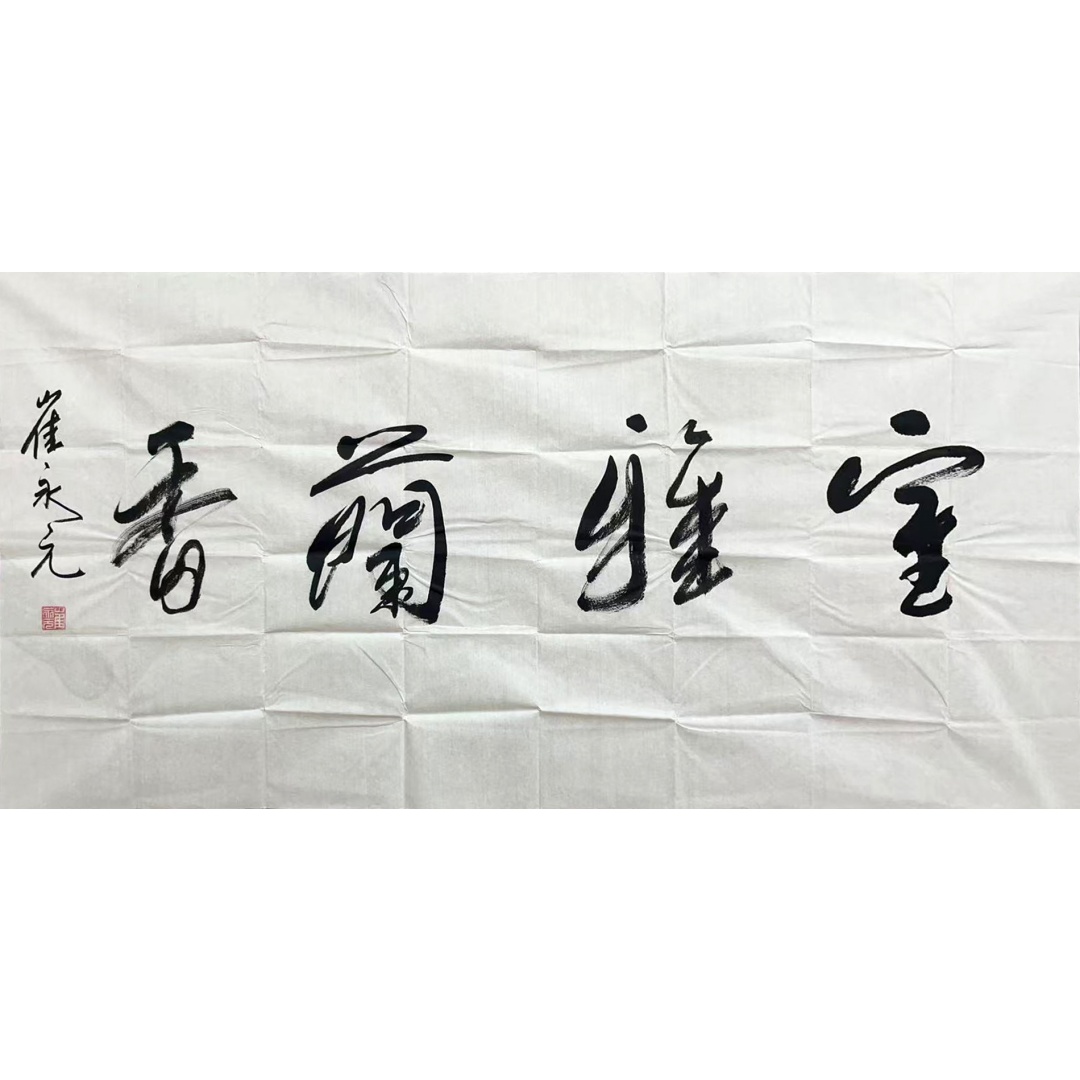 室雅蘭香
崔永元